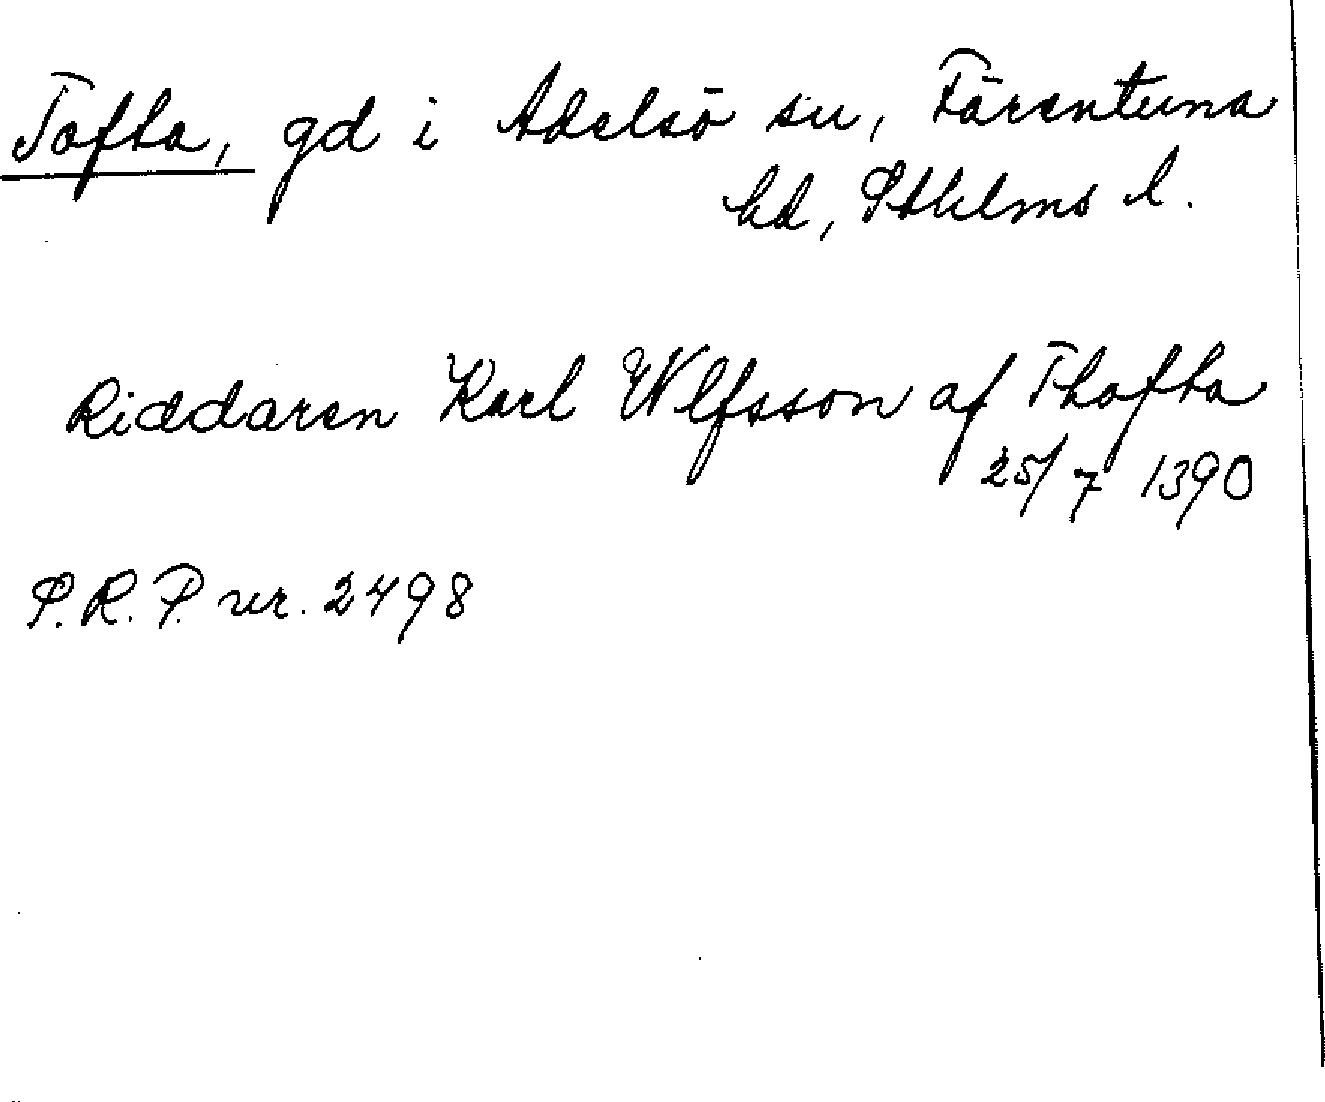 Tofta, gd i Adelsö sn, Färentuna
hd, Sthlms l.
Riddaren Karl Wlfsson af Thofta
25/7 1390
S.R.P. nr. 2498